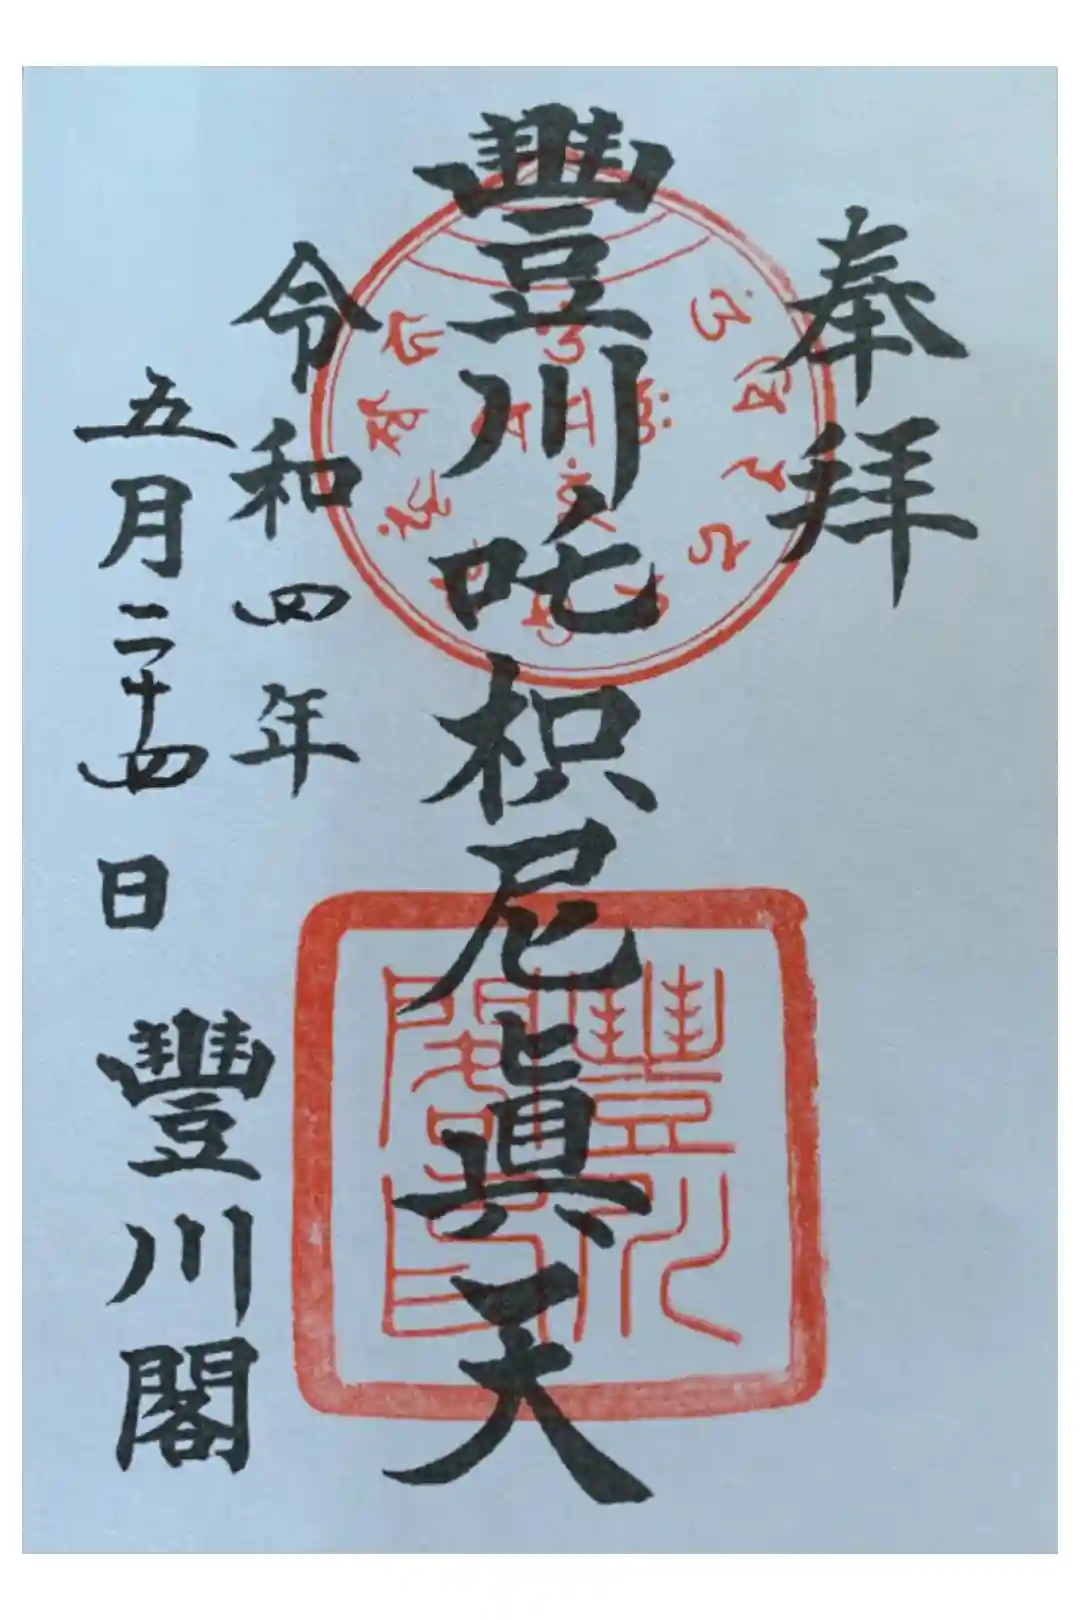 奉拜
豐川吒枳尼眞天
令和四年
五月二十四日
豐川閣